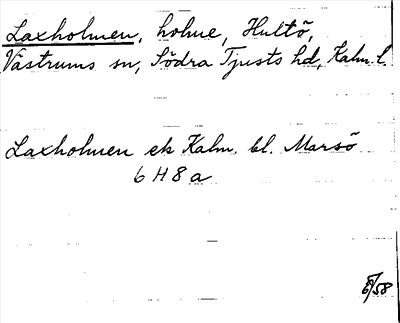 Laxholmen, holme, Hultö,
Västrums sn, Södra Tjusts hd, Kalm. l.
Laxholmen ek Kalm. bl. Marsö
6 H 8 a
/58